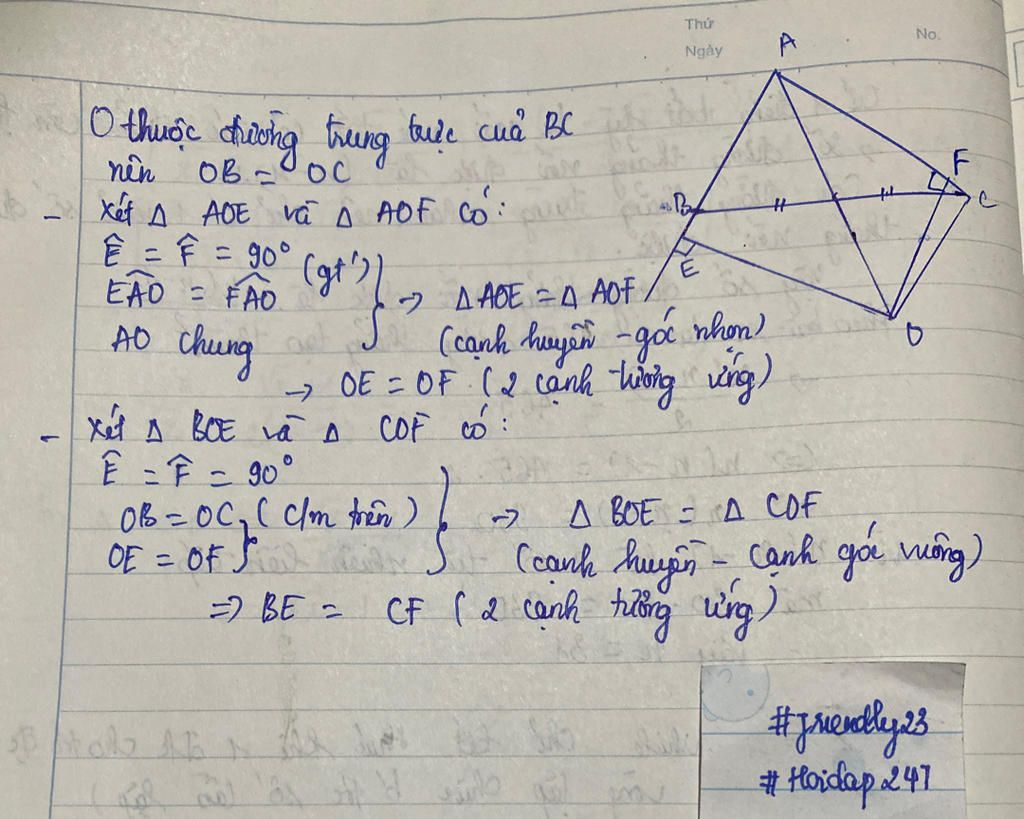 Thứ
Ngày
No.
O thuộc đường trung trực của BC
nên OB = OC
- Xét △ AOE và △ AOF có:
Ê = F̂ = 90° (gt)
EAO = FAO
AO chung
→ △AOE = △AOF
(cạnh huyền - góc nhọn)
→ OE = OF (2 cạnh tương ứng)
- Xét △ BOE và △ COF có:
Ê = F̂ = 90°
OB = OC (c/m trên)
OE = OF
→ △ BOE = △ COF
(cạnh huyền - cạnh góc vuông)
=> BE = CF (2 cạnh tương ứng)
A
B
E
F
C
O
#friendly23
#Hoidap247